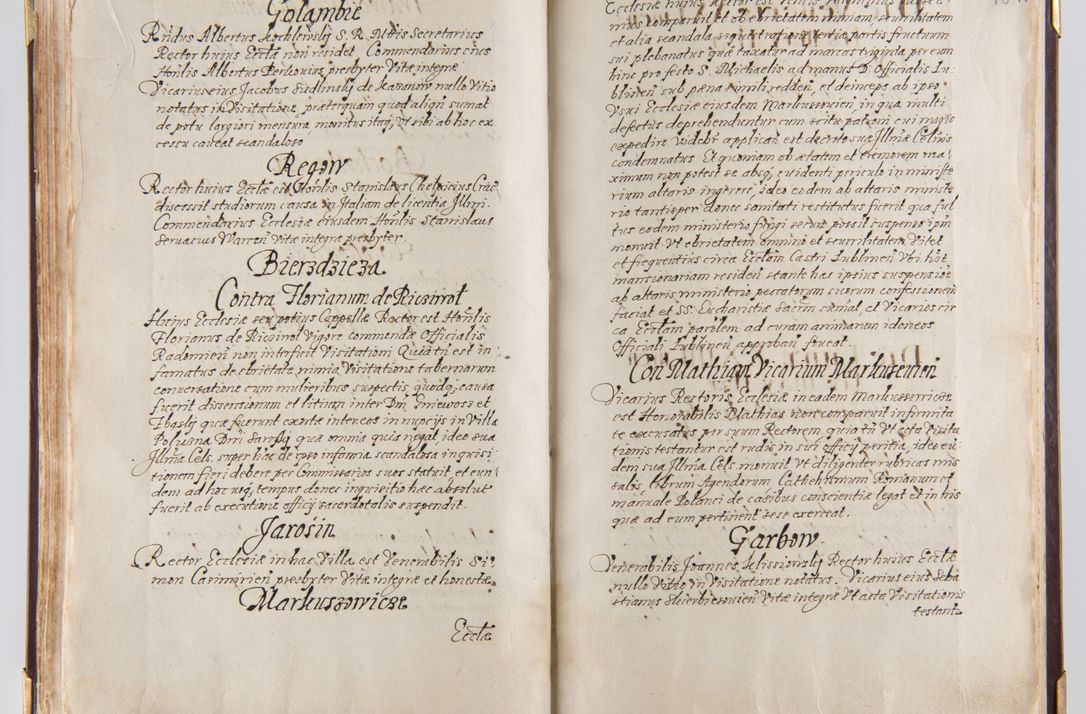 Golambie
Rndus Albertus Kochlewskj S. R. Mttis Secretarius
Rector huius Ecctæ non residet, Commendarius eius
Honlis Albertus Perkowius presbyter Vitæ integræ
Vicarius eius Jacobus Siedlinskj de Kazanow nullo Vitio
notatus in Visitatione, præterquam quod aliqñ sumat
de potu largiori mensura, monitus itaq, Vt sibi ab hoc ex
cessu caueat scandaloso
Regow
Rector huius Ecctæ est Honlis Stanislaus Chelpicius Crac
discessit studiorum causa in Italiam de licentia Jllmi.
Commendarius Ecclesiæ eiusdem Honlis Stanislaus
Seruacius Warceñ Vitæ integræ presbyter.
Bierzdzieza
Contra Florianum de Ricziwol
Huius Ecclesiæ seu potius Cappellæ Rector est Honlis
Florianus de Ricziwol Vigore commendæ Officialis
Radomieñ non interfuit Visitationi Quia tñ est in
famatus de ebrietate nimia, Visitatione tabernarum
conuersatione cum mulieribus suspectis, quodq, causa
fuerit dissensionum et litium inter Dm Gniewosz et
Ibaskj quæ fuerunt exortæ inter eos in nupcijs in Villa
Policzna Dni Sarskj quæ omnia quia negat, ideo sua
Jllma Cels. super hoc de toto infamia scandalosa inquisi
tionem fieri debere per Commissarios suos statuit, et eun
dem ad hoc usq, tempus donec inquisitio hæc absolut
fuerit ab executione officij sacerdotalis suspendit.
Jarosin
Rector Ecclesiæ in hac Villa est Venerabilis Si
mon Casimirieñ presbyter Vitæ integræ et honestæ
Markuszowicze
Ecctæ
Ecclesiæ huius Rector est
mus comparuit et ob ebrietatem nimiam scurrilitatem
et alia scandala sequestratione tertiæ partis fructuum
sui plebanatus quæ taxatur ad marcas triginta per eum
hinc pro festo S. Michaelis ad manus D. Officialis Lu
blineñ sub pæna simili reddeñ, et deinceps ab ipso
Vsui Ecclesiæ eiusdem Markuszouieñ, in qua multi
defectus deprehenduntur cum scitu patroni cui magis
expedire videbr applicañ est decreto suæ Jllmæ Celnis
condemnatus Et quoniam ob ætatem et tremorem ma
ximum non potest se absq, euidenti periculo in ministe
rium altaris ingerere, ideo eodem ab altaris ministe
rio tantisper donec sanitati restitutus fuerit qua ful
tus eodem ministerio fungi secure possit suspenso ipm
monuit Vt ebrietatem omnino et scurrilitatem Vitet
et frequentius circa Ecctam Castri Lublineñ Vbi hēt
mansionariam resideñ stante hac ipsius suspensioe
ab altaris ministerio peccatorum suorum confessionem
faciat et SS. Eucharistiæ Sacrm sumat, et Vicarios cir
ca Ecctam parolem ad curam animarum idoneos
Officiali Lublineñ approbañ foueat.
Con Mathiam Vicarium Markuszeuien
Vicarius Rectoris Ecclesiæ in eadem Markuszouicze
est Honorabilis Mathias non comparuit infirmita
te excusatus per suum Rectorem, quia tñ Vt acta Visita
tionis testantur est rudis in sui officij peritia, ideo eu
dem sua Jllma Cels. monuit Vt diligenter rubricas mis
salis, librum Agendorum Cathehismum Romanum et
manuale Polanci de casibus conscientiæ legat et in his
quæ ad eum pertinent sese exerceat.
Garbow
Venerabilis Joannes Klissionskj Rector huius Ecctæ
nullo Vitio in Visitatione notatus. Vicarius eius Seba
stianus Swierbiezouieñ Vitæ integræ Vt acta Visitationis
testantr